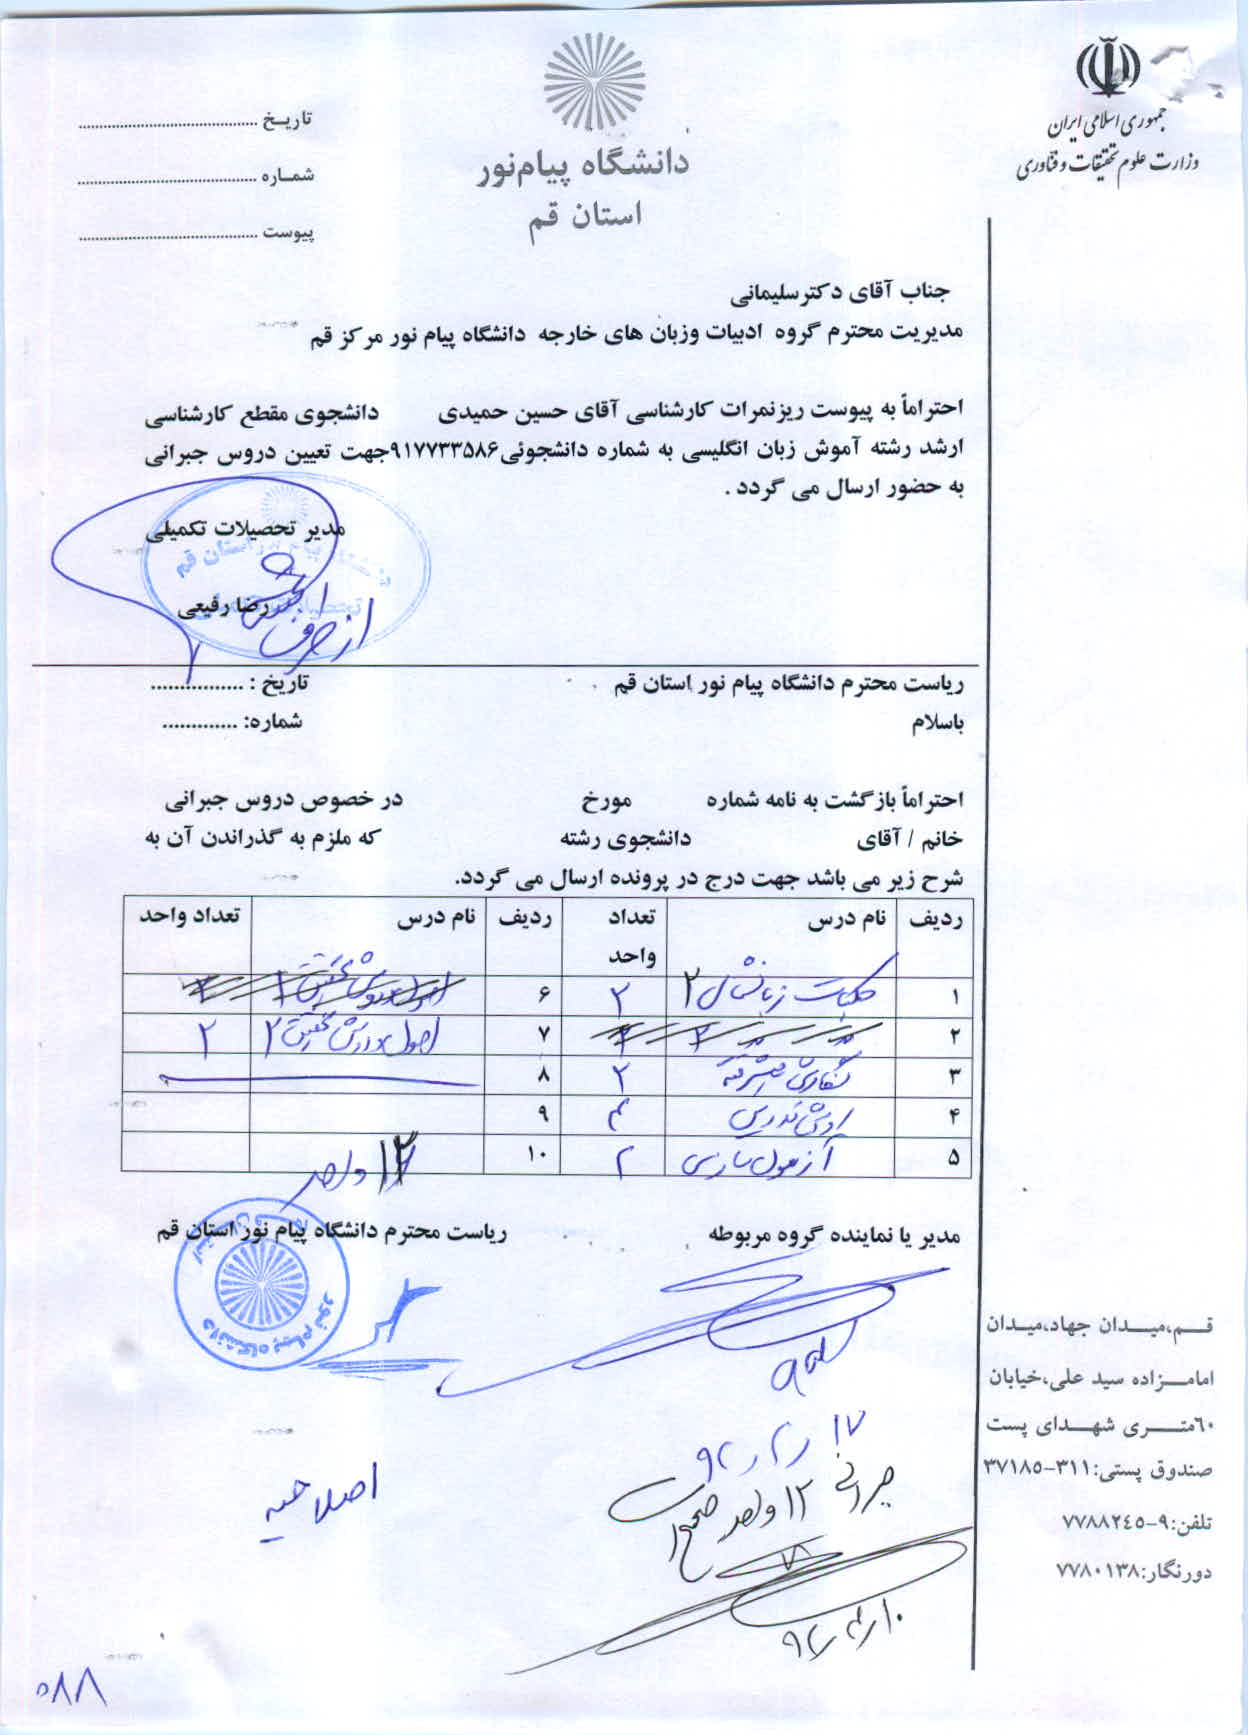 جمهوری اسلامی ایران
وزارت علوم تحقیقات و فناوری
دانشگاه پیام‌نور
استان قم
تاریـخ ..........................................
شمـاره ..........................................
پیوست ..........................................
جناب آقای دکترسلیمانی
مدیریت محترم گروه ادبیات وزبان های خارجه دانشگاه پیام نور مرکز قم
احتراماً به پیوست ریزنمرات کارشناسی آقای حسین حمیدی دانشجوی مقطع کارشناسی
ارشد رشته آموش زبان انگلیسی به شماره دانشجوئی۹۱۷۷۳۳۵۸۶جهت تعیین دروس جبرانی
به حضور ارسال می گردد .
مدیر تحصیلات تکمیلی
رضا رفیعی
از طرف
ریاست محترم دانشگاه پیام نور استان قم تاریخ : ................
باسلام شماره: .............
احتراماً بازگشت به نامه شماره مورخ در خصوص دروس جبرانی
خانم / آقای دانشجوی رشته که ملزم به گذراندن آن به
شرح زیر می باشد جهت درج در پرونده ارسال می گردد.
ردیف نام درس تعداد واحد ردیف نام درس تعداد واحد
۱ کلیات زبانشناسی ۲ ۲ ۶ اصول و روش تحقیق ۱ ۲
۲ ۷ اصول و روش تحقیق ۲ ۲
۳ نگارش پیشرفته ۲ ۸
۴ روش تدریس ۴ ۹
۵ آزمون سازی ۲ ۱۰
۱۲ واحد
مدیر یا نماینده گروه مربوطه ریاست محترم دانشگاه پیام نور استان قم
دانشگاه پیام نور
۱۷ / ۲ / ۹۲
جبرانی ۱۲ واحد صحیح
۱۰ / ۳ / ۹۲
اصلاحیه
قـــم،میـــدان جهاد،میـدان
امامـــزاده سید علی،خیابان
٦٠متــــری شهـــدای پست
صندوق پستی:۳۱۱-۳۷۱۸۵
تلفن:۹-۷۷۸۸۲٤٥
دورنگار:۷۷۸۰۱۳۸
۵۸۸